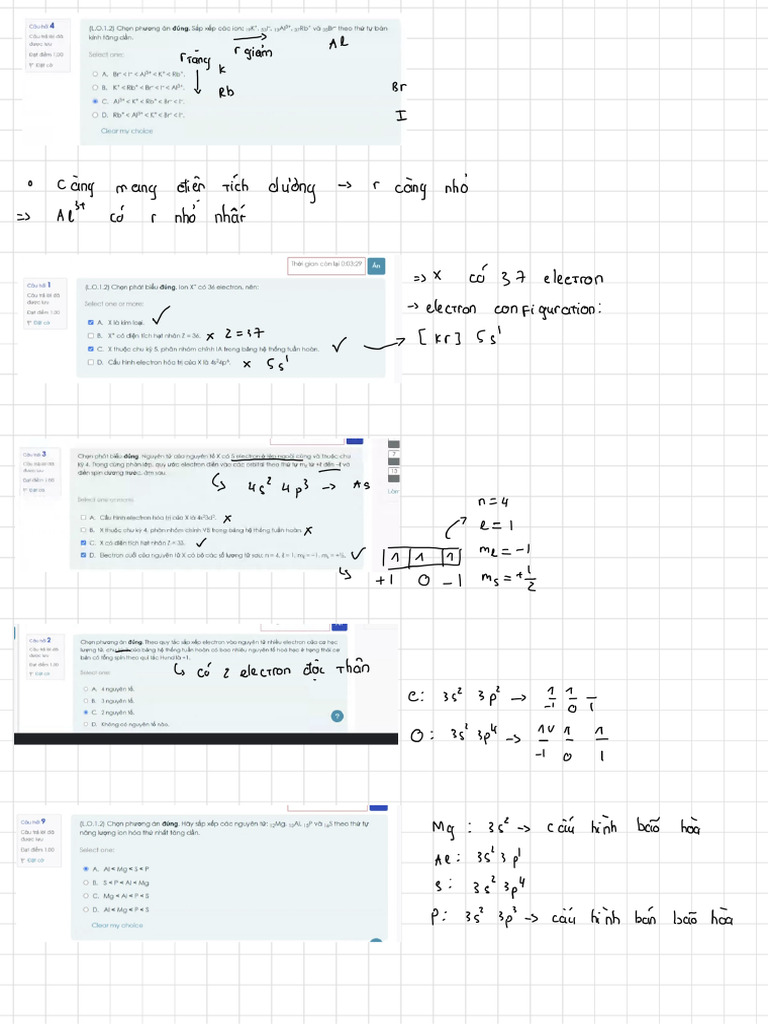 Câu hỏi 4
Câu trả lời đã
được lưu
Đạt điểm 1,00
Đặt cờ
(L.O.1.2) Chọn phương án đúng. Sắp xếp các ion: ₁₉K⁺, ₅₃I⁻, ₁₃Al³⁺, ₃₇Rb⁺ và ₃₅Br⁻ theo thứ tự bán
kính tăng dần.
Select one:
A. Br⁻ < I⁻ < Al³⁺ < K⁺ < Rb⁺.
B. K⁺ < Rb⁺ < Br⁻ < I⁻ < Al³⁺.
C. Al³⁺ < K⁺ < Rb⁺ < Br⁻ < I⁻.
D. Rb⁺ < Al³⁺ < K⁺ < Br⁻ < I⁻.
Clear my choice
r giảm
Al
r tăng
K
Rb
Br
I
• Càng mang điện tích dương → r càng nhỏ
=> Al³⁺ có r nhỏ nhất
Thời gian còn lại 0:03:29
Ẩn
Câu hỏi 1
Câu trả lời đã
được lưu
Đạt điểm 1,00
Đặt cờ
(L.O.1.2) Chọn phát biểu đúng. Ion X⁺ có 36 electron, nên:
Select one or more:
A. X là kim loại.
B. X⁺ có điện tích hạt nhân Z = 36. x Z=37
C. X thuộc chu kỳ 5, phân nhóm chính IA trong bảng hệ thống tuần hoàn.
D. Cấu hình electron hóa trị của X là 4s²4p⁶. x 5s¹
=> X có 37 electron
→ electron configuration:
[Kr] 5s¹
Câu hỏi 3
Câu trả lời đã
được lưu
Đạt điểm 1,00
Đặt cờ
Chọn phát biểu đúng. Nguyên tử của nguyên tố X có 5 electron ở lớp ngoài cùng và thuộc chu
kỳ 4. Trong cùng phân lớp, quy ước electron điền vào các orbital theo thứ tự mₗ từ +ℓ đến -ℓ và
điền spin dương trước, âm sau.
4s² 4p³ → As
Select one or more:
A. Cấu hình electron hóa trị của X là 4s²3d³. x
B. X thuộc chu kỳ 4, phân nhóm chính VB trong bảng hệ thống tuần hoàn. x
C. X có điện tích hạt nhân Z = 33.
D. Electron cuối của nguyên tố X có bộ các số lượng tử sau: n = 4, ℓ = 1, mₗ = -1, mₛ = +½.
7
13
Làm
+1 0 -1
n = 4
ℓ = 1
mₗ = -1
mₛ = +1/2
Câu hỏi 2
Câu trả lời đã
được lưu
Đạt điểm 1,00
Đặt cờ
Chọn phương án đúng. Theo quy tắc sắp xếp electron vào nguyên tử nhiều electron của cơ học
lượng tử, chu của bảng hệ thống tuần hoàn có bao nhiêu nguyên tố hoá học ở trạng thái cơ
bản có tổng spin theo qui tắc Hund là +1.
có 2 electron độc thân
Select one:
A. 4 nguyên tố.
B. 3 nguyên tố.
C. 2 nguyên tố.
D. Không có nguyên tố nào.
?
C: 3s² 3p² → 1 1
-1 0 1
O: 3s² 3p⁴ →
-1 0 1
Câu hỏi 9
Câu trả lời đã
được lưu
Đạt điểm 1,00
Đặt cờ
(L.O.1.2) Chọn phương án đúng. Hãy sắp xếp các nguyên tử: ₁₂Mg, ₁₃Al, ₁₅P và ₁₆S theo thứ tự
năng lượng ion hóa thứ nhất tăng dần.
Select one:
A. Al < Mg < S < P
B. S < P < Al < Mg
C. Mg < Al < P < S
D. Al < Mg < P < S
Clear my choice
Mg: 3s² → cấu hình bão hòa
Al: 3s² 3p¹
S: 3s² 3p⁴
P: 3s² 3p³ → cấu hình bán bão hòa